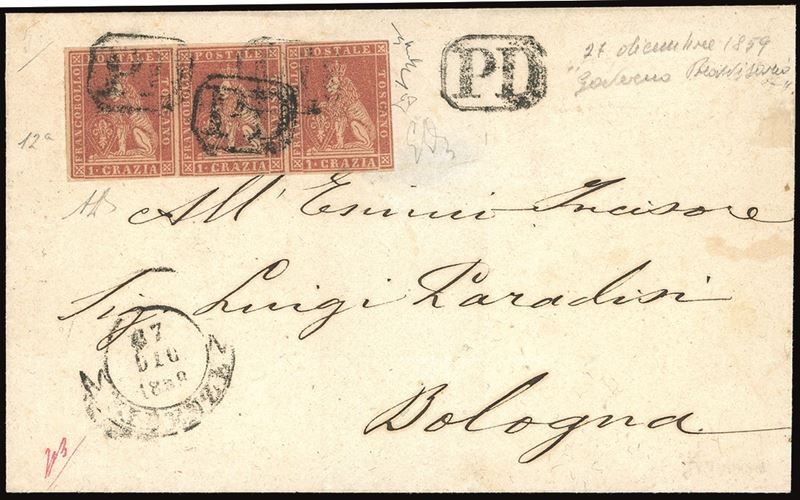 FRANCOBOLLO POSTALE TOSCANO 1·CRAZIA
FRANCOBOLLO POSTALE TOSCANO 1·CRAZIA
FRANCOBOLLO POSTALE TOSCANO 1·CRAZIA
PD
PD
PD
27 dicembre 1859
Governo Provvisorio
12a
All' Esimio Incisore
Sig. Luigi Paradisi
Bologna
27
DIC